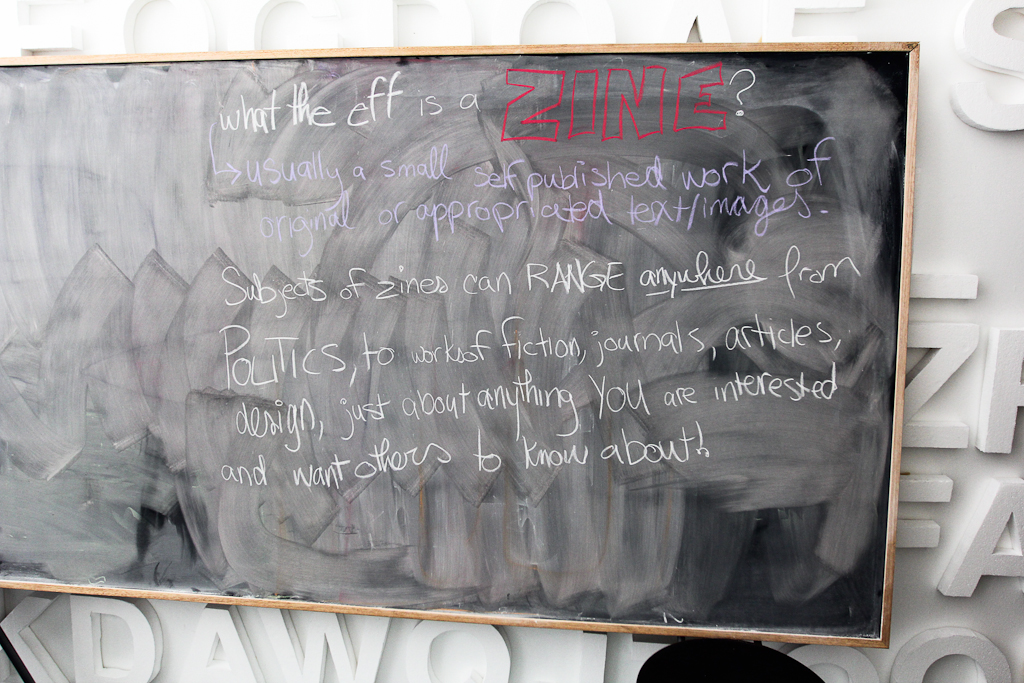 what the eff is a ZINE?
↳ usually a small self published work of
original or appropriated text/images.
Subjects of zines can RANGE anywhere from
POLITICS, to works of fiction, journals, articles,
design, just about anything YOU are interested
and want others to know about!
K D A W O